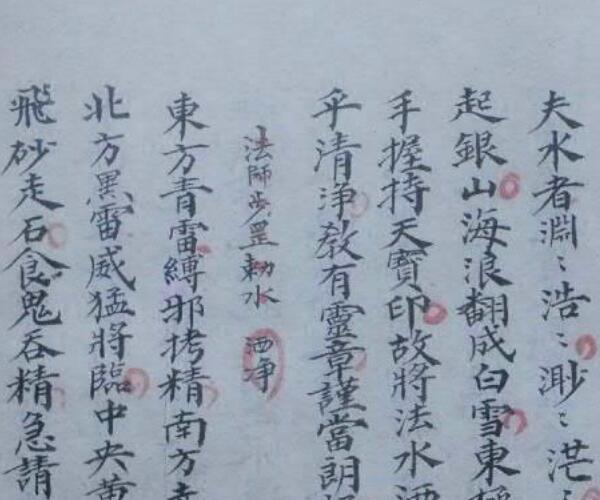 夫水者淵〻浩〻渺〻茫
起銀山海浪翻成白雪東
手握持天寶印故將法水
乎清浄教有靈章謹當朗
法師步罡勅水 洒净
東方青雷縛邪拷精南方
北方黑雷威猛將臨中央黄
飛砂走石食鬼吞精急請